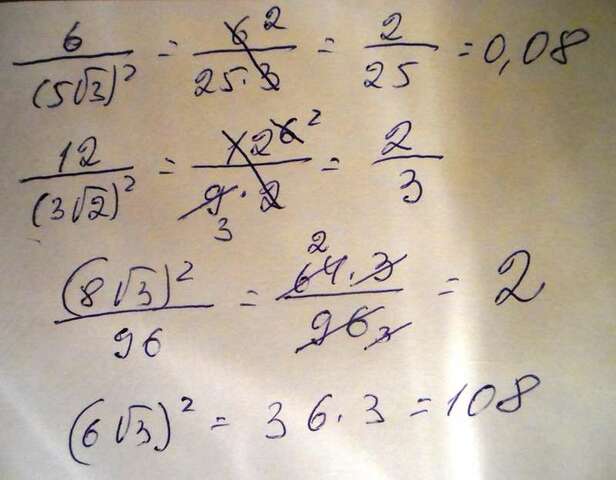 6/(5√3)² = 6 2/25·3 = 2/25 = 0,08
12/(3√2)² = 12 6 2/9·2 3 = 2/3
(8√3)²/96 = 2 64·3/96 3 = 2
(6√3)² = 36·3 = 108